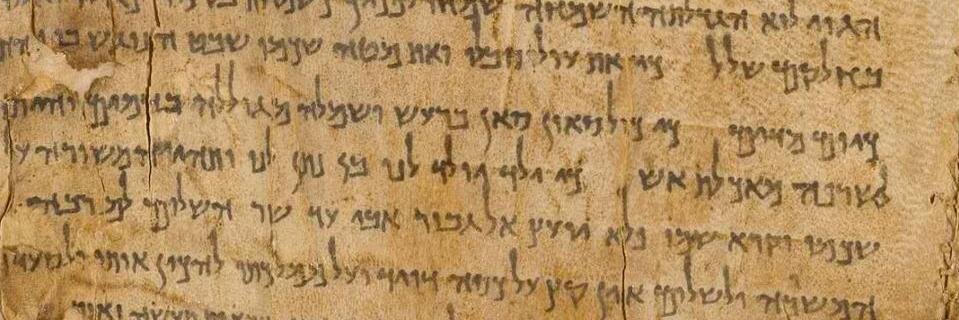 הגוי לוא הגדלתה השמחה שמחו לפניך
שלל כיא את עול סבלו ואת מטה שכמו שבט הנוגש בו
כיום מדים כיא כול סאון סאן ברעש ושמלה מגוללה בדמים והיתה
לשרפה מאכלת אש כיא ילד יולד לנו בן נתן לנו ותהי המשורה
שכמו וקרא שמו פלא יועץ אל גבור אבי עד שר השלום לםרבה
המשרה ולשלום אין קץ על כסא דויד ועל ממלכתו להכין אותו